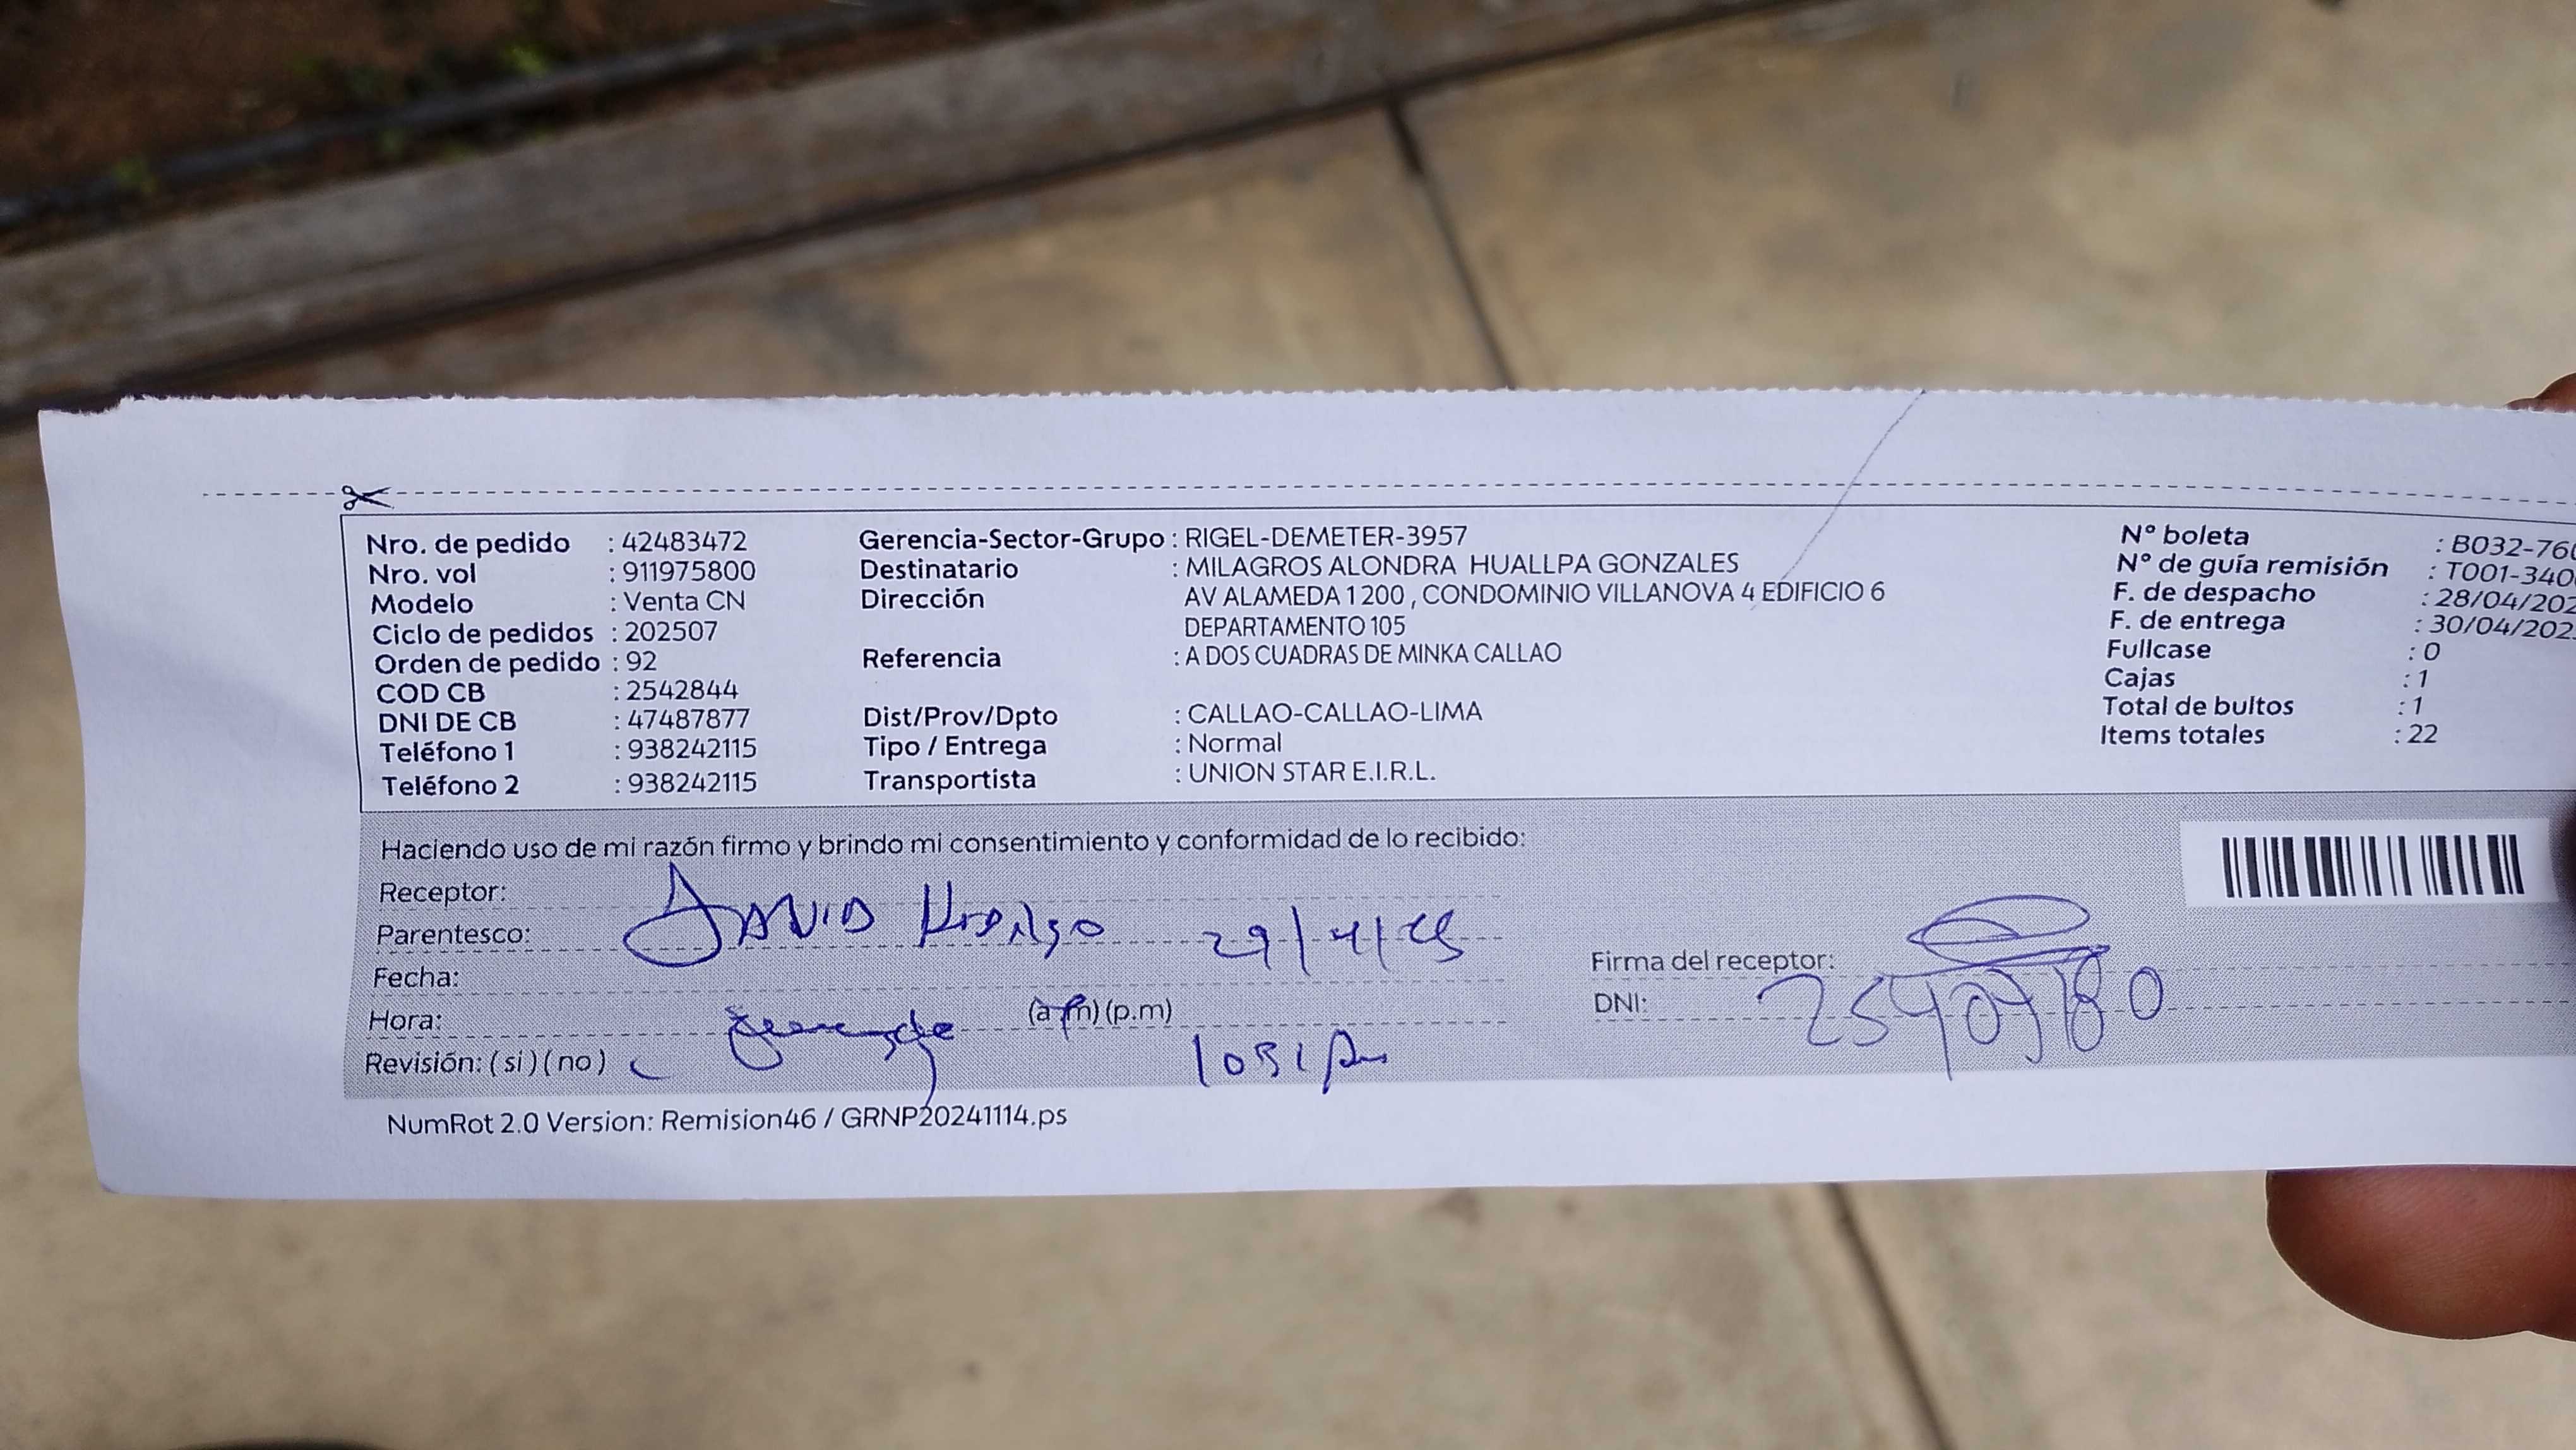 Nro. de pedido : 42483472
Nro. vol : 911975800
Modelo : Venta CN
Ciclo de pedidos : 202507
Orden de pedido : 92
COD CB : 2542844
DNI DE CB : 47487877
Teléfono 1 : 938242115
Teléfono 2 : 938242115
Gerencia-Sector-Grupo : RIGEL-DEMETER-3957
Destinatario : MILAGROS ALONDRA HUALLPA GONZALES
Dirección AV ALAMEDA 1200 , CONDOMINIO VILLANOVA 4 EDIFICIO 6
DEPARTAMENTO 105
Referencia : A DOS CUADRAS DE MINKA CALLAO
Dist/Prov/Dpto : CALLAO-CALLAO-LIMA
Tipo / Entrega : Normal
Transportista : UNION STAR E.I.R.L.
Nº boleta : B032-760
Nº de guía remisión : T001-340
F. de despacho : 28/04/202
F. de entrega : 30/04/202
Fullcase : 0
Cajas : 1
Total de bultos : 1
Items totales : 22
Haciendo uso de mi razón firmo y brindo mi consentimiento y conformidad de lo recibido:
Receptor:
Parentesco: DAVID Hidalgo 29/4/25
Fecha:
Hora: (a.m) (p.m)
Revisión: ( si ) ( no )
Firma del receptor:
DNI: 25409180
NumRot 2.0 Version: Remision46 / GRNP20241114.ps